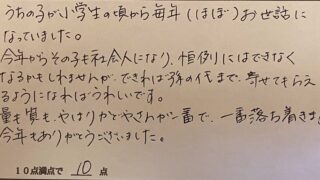 うちの子が小学生の頃から毎年(ほぼ)お世話に
なっていました。
今年からその子も社会人になり、恒例にはできなく
なるかもしれませんが、できれば孫の代まで、寄せてもらえ
るようになればうれしいです。
量も質も、やはりかどやさんが一番で、一番落ち着きま
今年もありがとうございました。
10点満点で 10 点